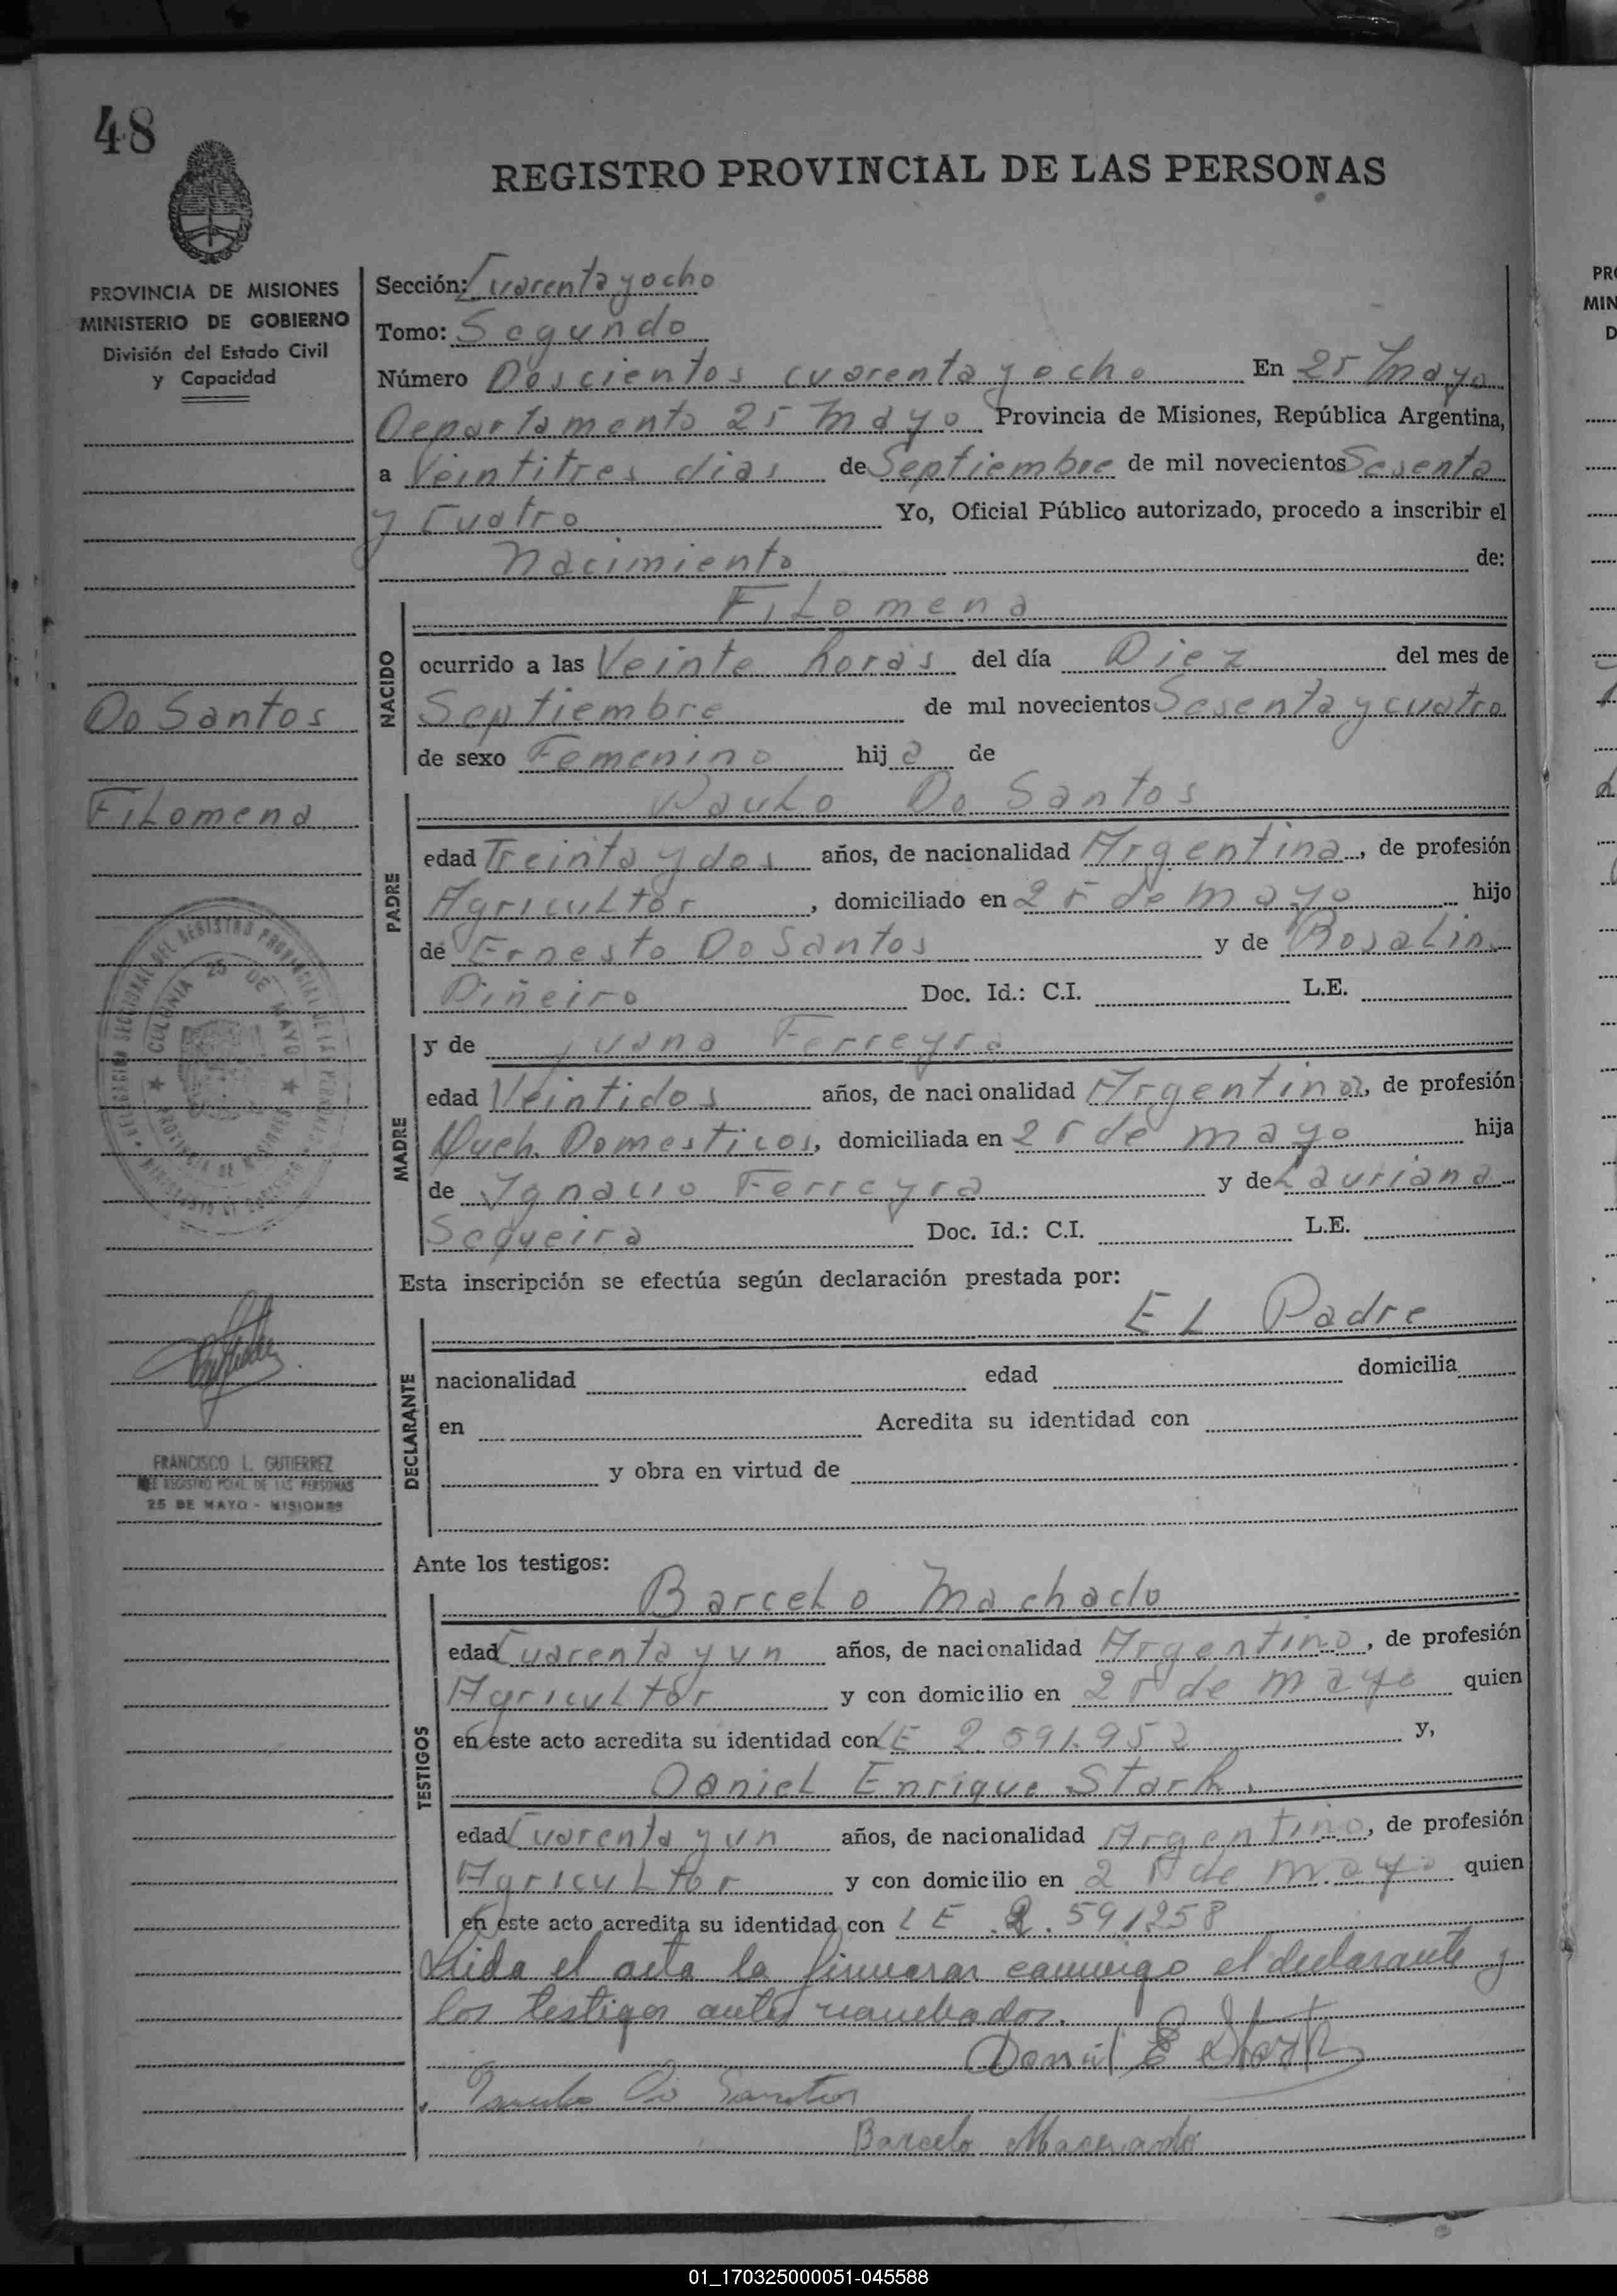 48
REGISTRO PROVINCIAL DE LAS PERSONAS
PROVINCIA DE MISIONES
MINISTERIO DE GOBIERNO
División del Estado Civil
y Capacidad
Sección: Cuarenta y ocho
Tomo: Segundo
Número Doscientos cuarenta y ocho En 25 Mayo
Departamento 25 Mayo Provincia de Misiones, República Argentina,
a Veintitres dias de Septiembre de mil novecientos Sesenta
y Cuatro Yo, Oficial Público autorizado, procedo a inscribir el
Nacimiento de:
Filomena
NACIDO
ocurrido a las Veinte horas del día Diez del mes de
Septiembre de mil novecientos Sesenta y cuatro
de sexo Femenino hij a de
Do Santos
Filomena
Paulo Do Santos
PADRE
edad Treinta y dos años, de nacionalidad Argentina, de profesión
Agricultor, domiciliado en 25 de mayo hijo
de Ernesto Do Santos y de Rosalin
Piñeiro Doc. Id.: C.I. L.E.
y de Juana Ferreyra
MADRE
edad Veintidos años, de nacionalidad Argentina, de profesión
Queh. Domesticos, domiciliada en 25 de mayo hija
de Ygnacio Ferreyra y de Lauriana
Sequeira Doc. Id.: C.I. L.E.
COLONIA 25 DE MAYO
PROVINCIA DE MISIONES
Esta inscripción se efectúa según declaración prestada por:
El Padre
DECLARANTE
nacionalidad edad domicilia
en Acredita su identidad con
y obra en virtud de
FRANCISCO L. GUTIERREZ
REGISTRO PCIAL. DE LAS PERSONAS
25 DE MAYO - MISIONES
Ante los testigos:
Barcelo Machado
TESTIGOS
edad Cuarenta y un años, de nacionalidad Argentino, de profesión
Agricultor y con domicilio en 25 de mayo quien
en este acto acredita su identidad con LE 2.591.952 y,
Daniel Enrique Stark.
edad Cuarenta y un años, de nacionalidad Argentino, de profesión
Agricultor y con domicilio en 25 de mayo quien
en este acto acredita su identidad con LE 2.591258
Leida el acta la firmaran conmigo el declarante y
los testigos antes nombrados.
Daniel E Stark
Paulo Do Santos
Barcelo Machado
01_170325000051-045588